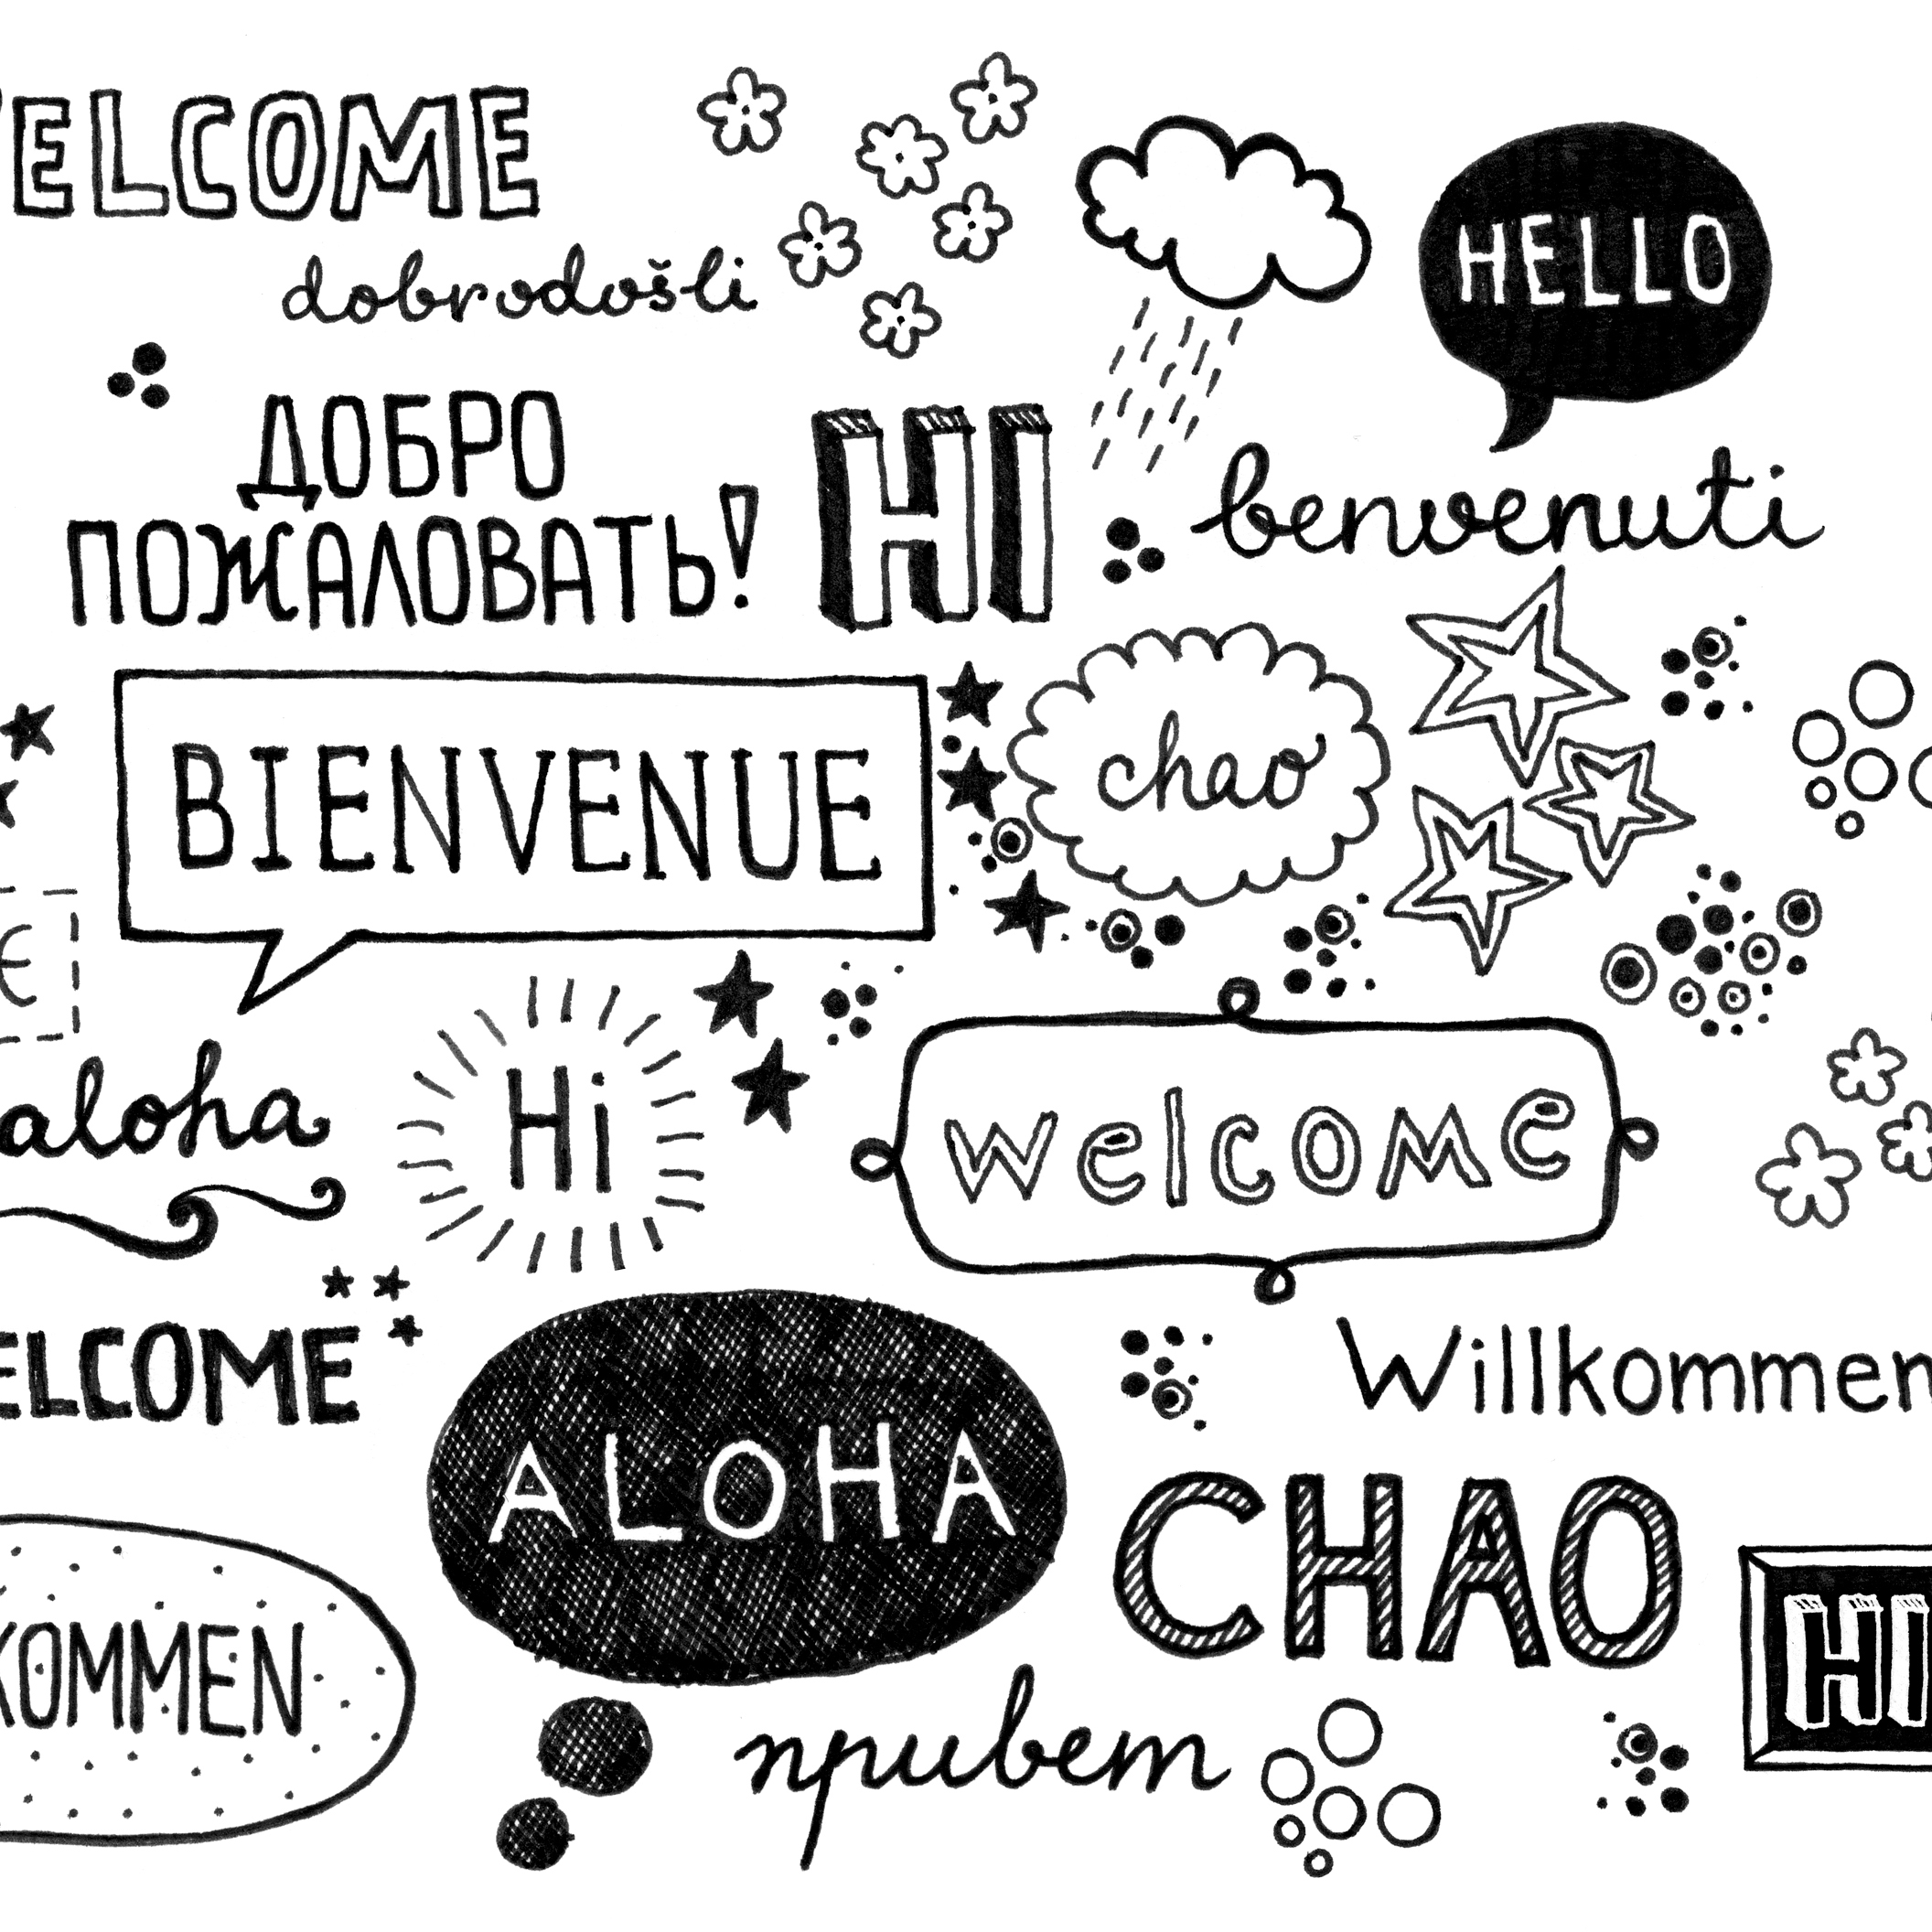 WELCOME
dobrodošli
HELLO
ДОБРО
ПОЖАЛОВАТЬ!
HI
benvenuti
BIENVENUE
chao
aloha
Hi
welcome
ELCOME
Willkommen
ALOHA
CHAO
KOMMEN
HI
привет